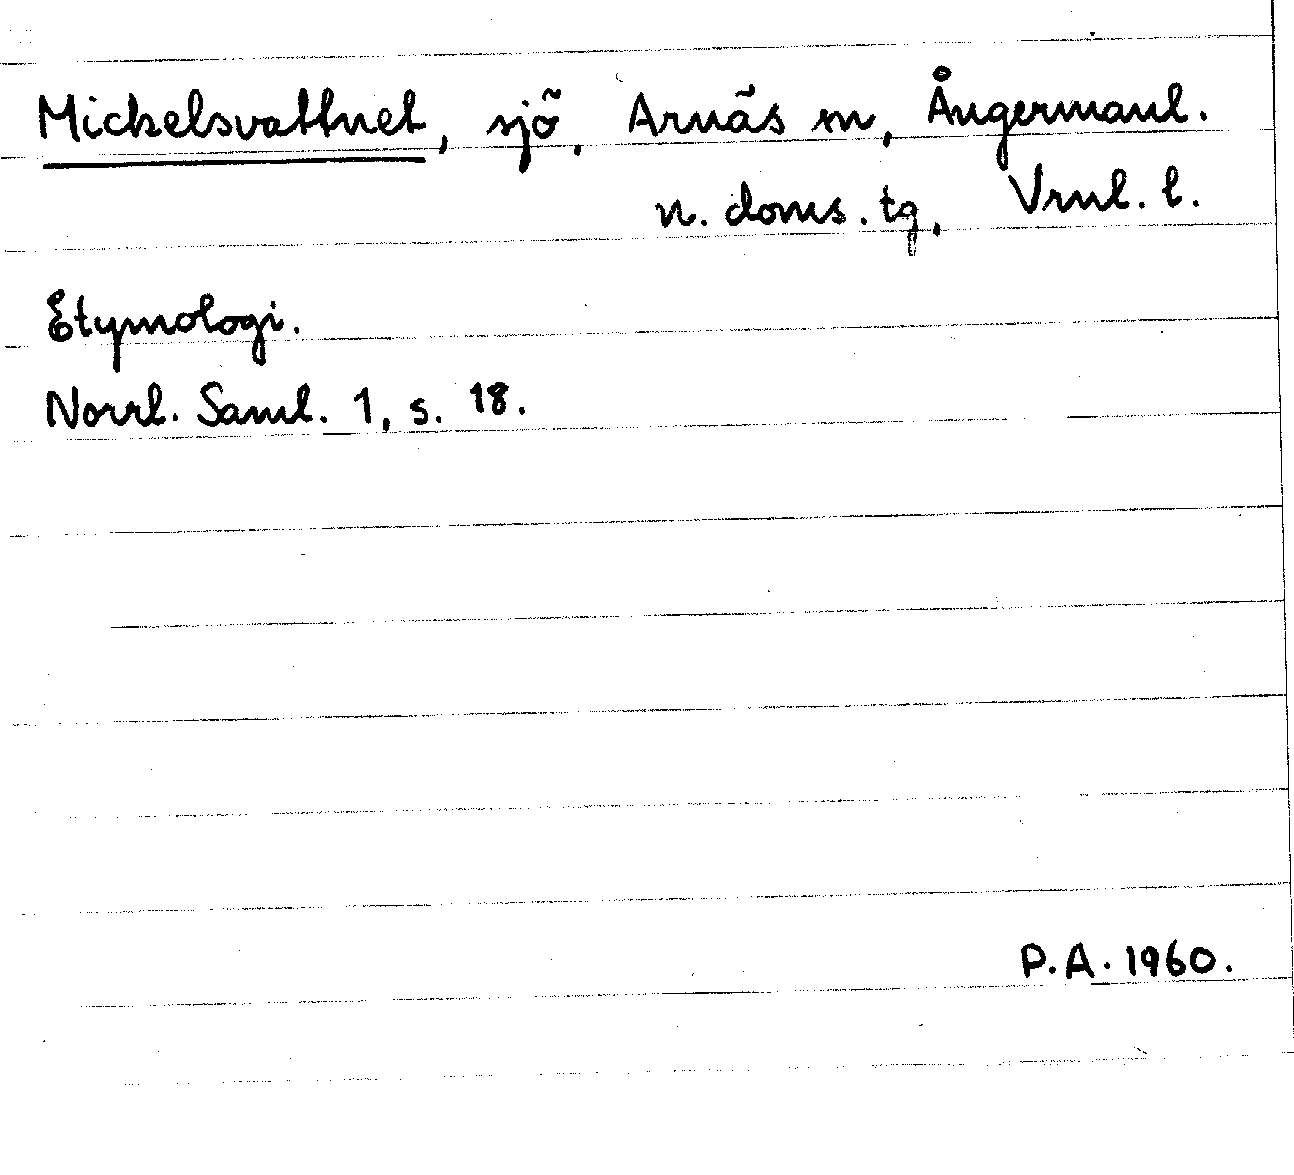 Mickelsvattnet, sjö, Arnäs sn, Ångermanl.
n. doms. tg, Vrnl. l.
Etymologi.
Norrl. Saml. 1, s. 18.
P.A. 1960.